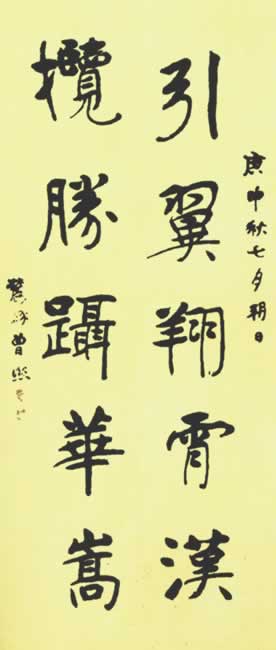 庚申秋七夕朔日
引翼翔霄漢
攬勝躡華嵩
農髯曾熙